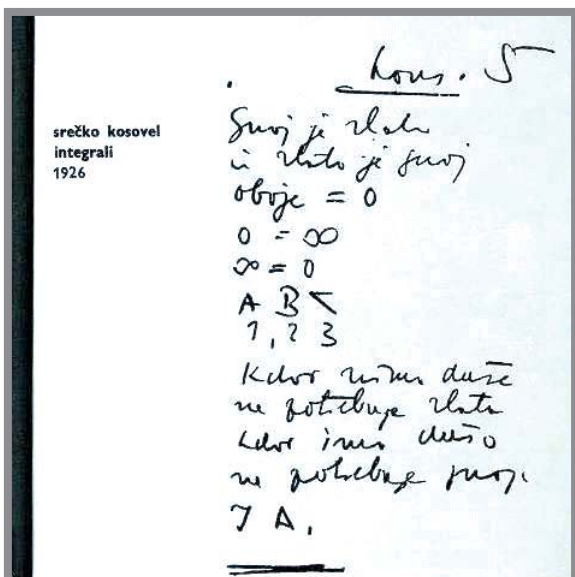 srečko kosovel
integrali
1926
Kons. 5
Gnoj je zlato
in zlato je gnoj
oboje = 0
0 = ∞
∞ = 0
A B <
1, 2 3
Kdor nima duše
ne potrebuje zlata
kdor ima dušo
ne potrebuje gnoja
I A.